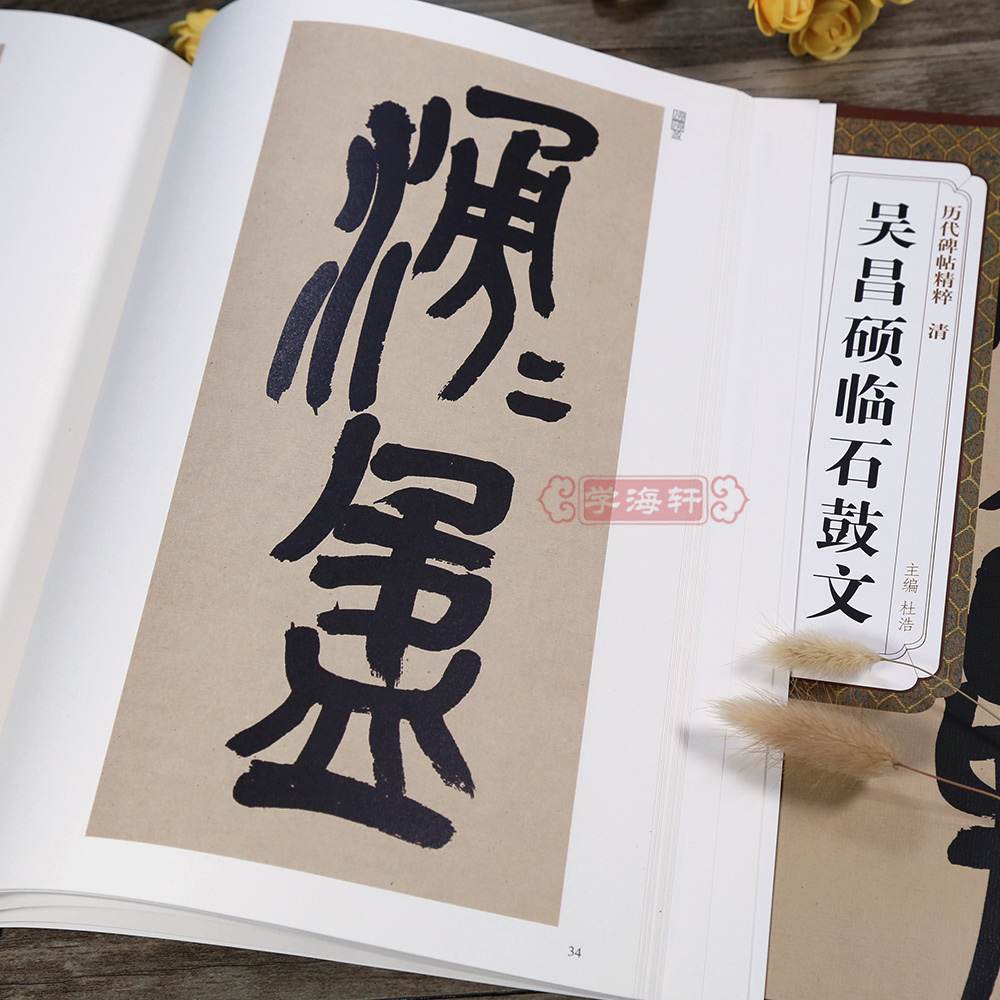 盈
34
历代碑帖精粹 清
吴昌硕临石鼓文
主编 杜浩
学海轩